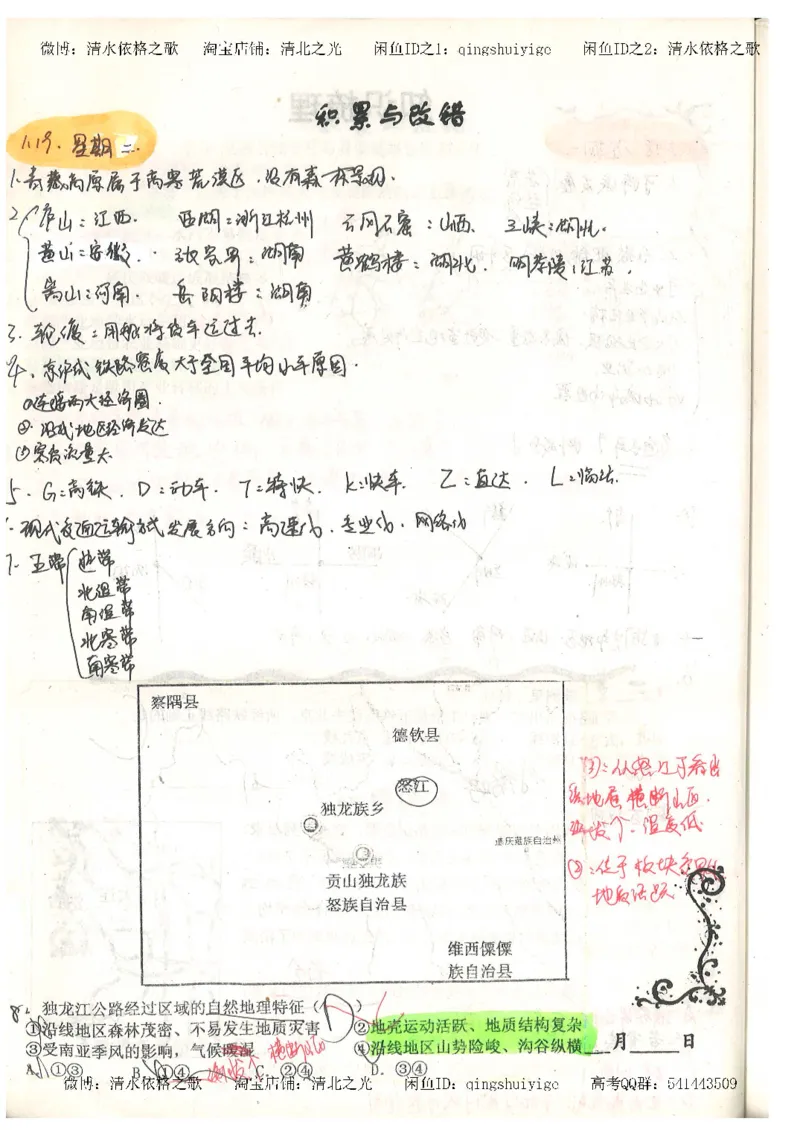 微博：清水依格之歌 淘宝店铺：清北之光 闲鱼ID之1：qingshuiyige 闲鱼ID之2：清水依格之歌
积累与改错
1.19. 星期二.
1. 青藏高原属于高寒荒漠区，没有森林景观.
2. 庐山：江西. 西湖：浙江杭州 云冈石窟：山西. 三峡：湖北.
黄山：安徽. 张家界：湖南 黄鹤楼：湖北. 明孝陵：江苏.
嵩山：河南. 岳阳楼：湖南
3. 轮渡：用船将货车运过去.
4. 京沪线铁路密度大于全国平均水平原因.
①连接两大经济圈.
②. 沿线地区经济发达
③客货流量大.
5. G：高铁. D：动车. T：特快. K：快车. Z：直达. L：临客.
现代交通运输方式发展方向：高速化、专业化、网络化
7. 五带 热带
北温带
南温带
北寒带
南寒带
察隅县
德钦县
怒江
独龙族乡
迪庆藏族自治州
贡山独龙族
怒族自治县
维西傈僳
族自治县
位于板块
地质活跃
8. 独龙江公路经过区域的自然地理特征（D）
①沿线地区森林茂密、不易发生地质灾害 ②地壳运动活跃、地质结构复杂
③受南亚季风的影响，气候暖湿 ④沿线地区山势险峻、沟谷纵横 月 日
A. ①③ B. ①④ C. ②④ D. ③④
微博：清水依格之歌 淘宝店铺：清北之光 闲鱼ID：qingshuiyige 高考QQ群：541443509